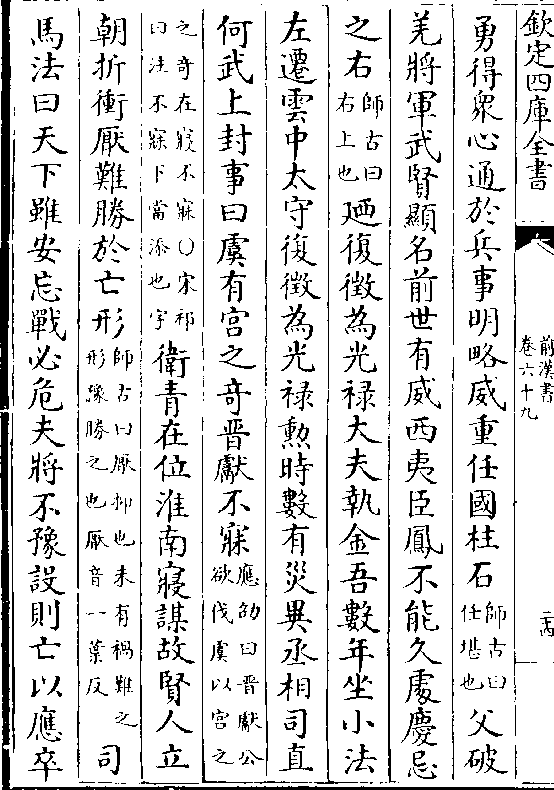 欽定四庫全書
前漢書
卷六十九
勇得衆心通於兵事明略威重任國柱石師古曰任堪也父破
羌將軍武賢顯名前世有威西夷臣鳳不能久處慶忌
之右師古曰右上也廼復徴為光禄大夫執金吾數年坐小法
左遷雲中太守復徴為光禄勲時數有災異丞相司直
何武上封事曰虞有宫之奇晋獻不寐應劭曰晋獻公欲伐虞以宫之
之奇在寢不寐〇宋祁曰注不寐下當添也字衛青在位淮南寢謀故賢人立
朝折衝厭難勝於亡形師古曰厭抑也未有禍難之形豫勝之也厭音一葉反司
馬法曰天下雖安忘戰必危夫將不豫設則亡以應卒